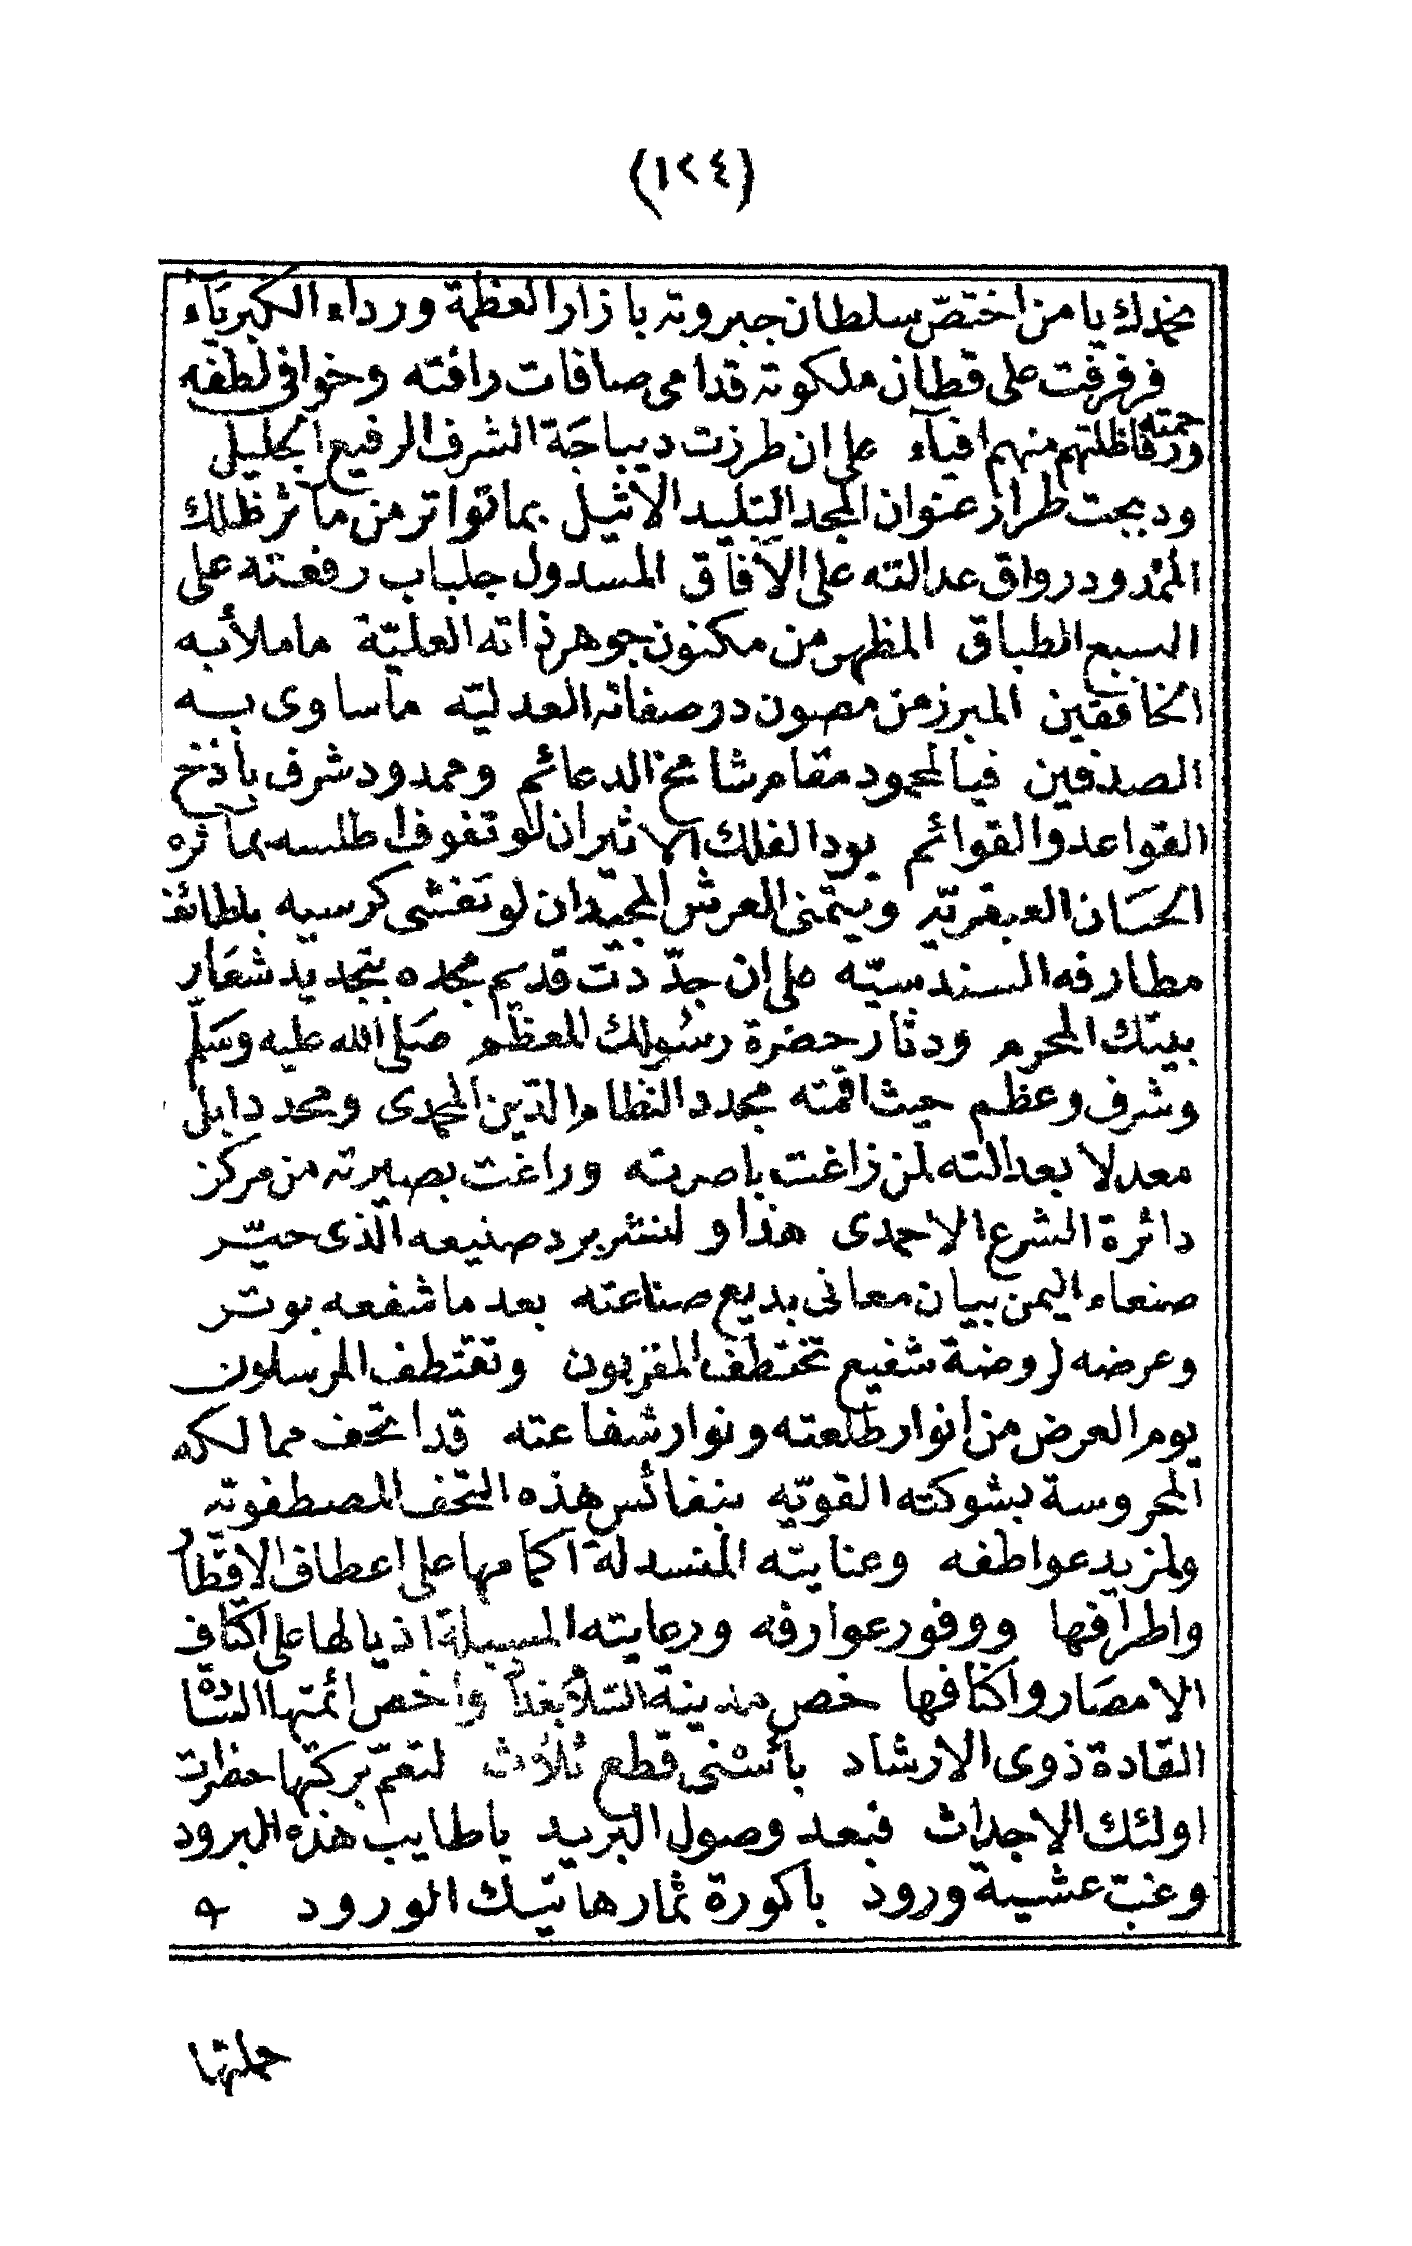 (١٢٤)
نحمدك يا من اختصّ سلطان جبروته بازار العظمة ورداء الكبريآء
فرفرفت على قطان ملكوته قدامى صافات رافته وخوافى لطفه
ورحمته فاظلتهم منهم افيآء على ان طرزت ديباجَة الشرف الرفيع الجليلى
ودبجت طراز عنوان المجد التليد الاثيل بما تواتر من مآثر ظلك
الممدود رواق عدالته على الآفاق المسدول جلباب رفعته على
السبع الطباق المظهر من مكنون جوهر ذاته العليّة ما ملأ به
الخافقين المبرز من مصون در صفاته العدليّه ما ساوى به
الصدفين فيا لمحمود مقام شامخ الدعائم وممدود شرف باذخ
القواعد والقوائم يود الفلك الاثير ان لو تفوف اطلسه بمآثره
الحسَان العبقريّه ويتمنى العرش المجيد ان لو تغشى كرسيه بلطائف
مطارفه السندسيّه على ان جدّدت قديم مجده بتجديد شعَار
بيتك المحرم ودثار حضرة رسُولك المعظم صَلى الله عليه وسَلّم
وشرف وعظم حيث اقمته مجدد النظام الدّين المحمدى ومحددا بل
معدلا بعدالته لمن زاغت باصرته وراغت بصيرته من مركز
دائرة الشرع الاحمدى هذا و لننشر برد صنيعه الّذى حيّر
صنعاء اليمن ببيان معانى بديع صناعته بعد ما شفعه بوتر
وعرضه لروضة شفيع تختطف المقربون وتقتطف المرسلون
يوم العرض من انوار طلعته ونوار شفاعته قد اتحف ممالكه
المحروسة بشوكته القويّه بنفائس هذه التحف المصطفويّه
ولمزيد عواطفه وعنايته المنسدلة اكمامها على اعطاف الاقطار
واطرافها ووفور عوارفه ورعايته المسبلة اذيالها على اكتاف
الامصَار واكنافها خص مدينة السّلام بغداد واخص ائمتها السَّادة
القادة ذوى الارشاد باسْنى قطع ثلاث لتعمّ بركتها حضرات
اولئك الاجداث فبعد وصول البريد باطايب هذه البرود
وغبّ عشية ورود باكورة ثمار هاتيك الورود ٩
حملتها